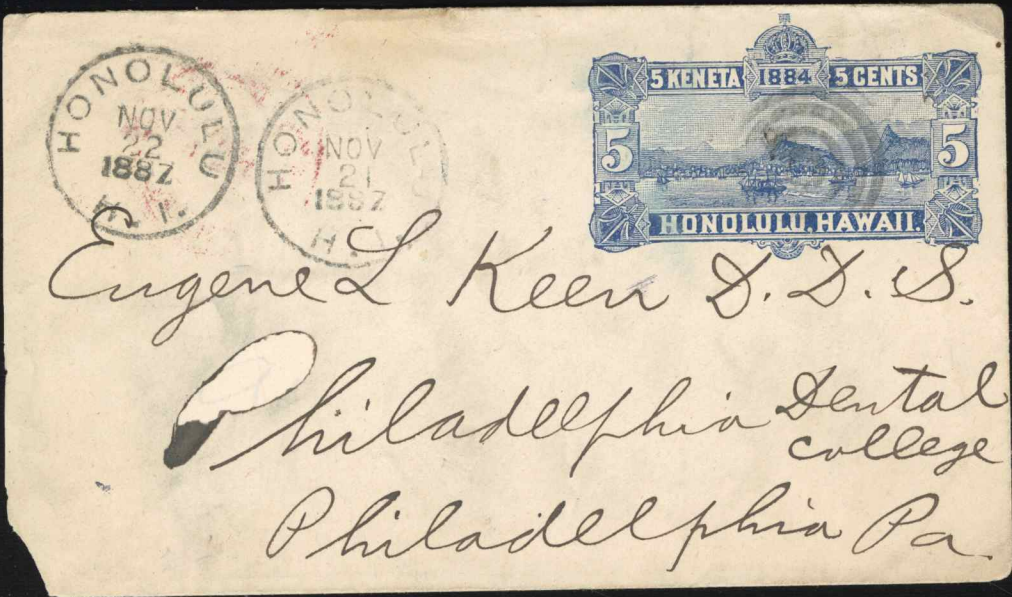 HONOLULU
NOV
22
1887
H. I.
HONOLULU
NOV
21
1887
H. I.
5 KENETA 1884 5 CENTS
5 5
HONOLULU, HAWAII.
Eugene L Keen D. D. S.
Philadelphia Dental
College
Philadelphia Pa